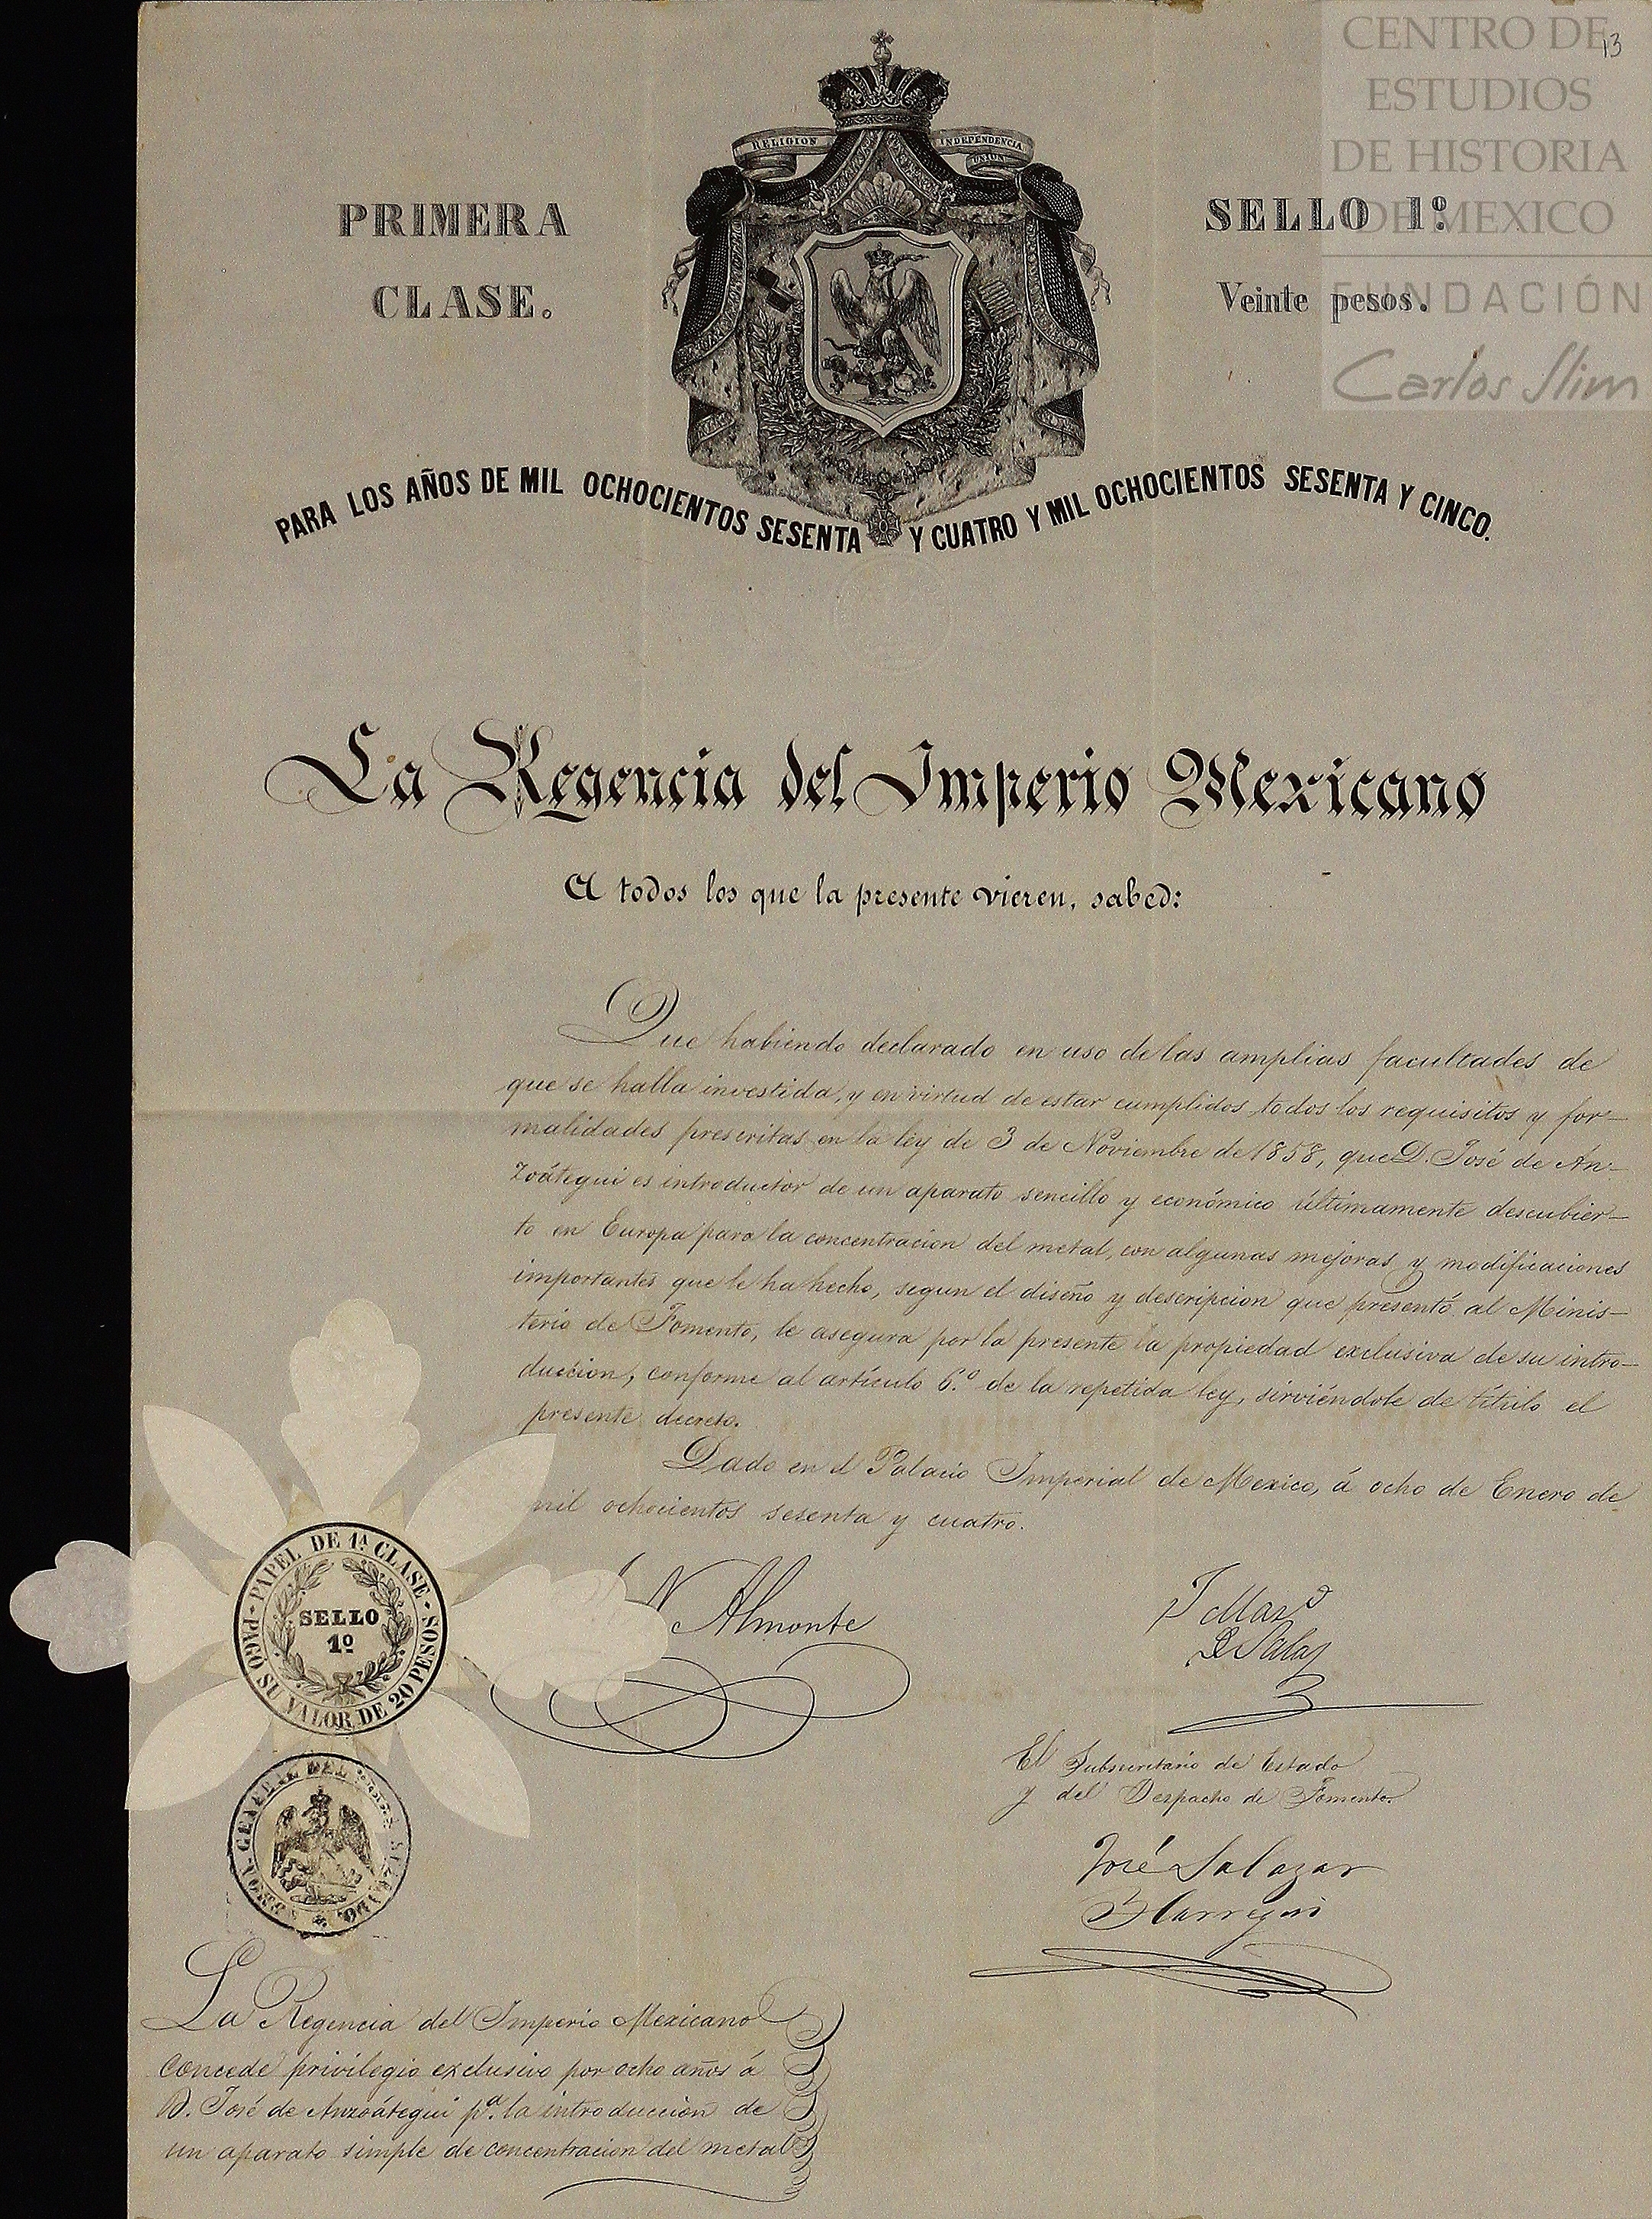 CENTRO DE
ESTUDIOS
DE HISTORIA
DE MEXICO
FUNDACIÓN
Carlos Slim
13
RELIGION INDEPENDENCIA
UNION
PRIMERA
CLASE.
SELLO 1º
Veinte pesos.
PARA LOS AÑOS DE MIL OCHOCIENTOS SESENTA Y CUATRO Y MIL OCHOCIENTOS SESENTA Y CINCO.
La Regencia del Imperio Mexicano
A todos los que la presente vieren, sabed:
Que habiendo declarado en uso de las amplias facultades de
que se halla investida, y en virtud de estar cumplidos todos los requisitos y for-
malidades prescritas en la ley de 3 de Noviembre de 1858, que D. José de An-
zoátegui es introductor de un aparato sencillo y económico últimamente descubier-
to en Europa para la concentracion del metal, con algunas mejoras y modificaciones
importantes que le ha hecho, segun el diseño y descripcion que presentó al Minis-
terio de Fomento, le asegura por la presente la propiedad exclusiva de su intro-
duccion, conforme al artículo 6.º de la repetida ley, sirviéndole de título el
presente decreto.
Dado en el Palacio Imperial de Mexico, á ocho de Enero de
mil ochocientos sesenta y cuatro.
N Almonte
J Mar.º
D Salas
El Subsecretario de Estado
y del Despacho de Fomento.
José Salazar
Ilarregui
PAPEL DE 1ª CLASE · PAGO SU VALOR DE 20 PESOS ·
SELLO
1º
GENERAL DEL
La Regencia del Imperio Mexicano
concede privilegio exclusivo por ocho años á
D. José de Anzoátegui pª. la introduccion de
un aparato simple de concentracion del metal